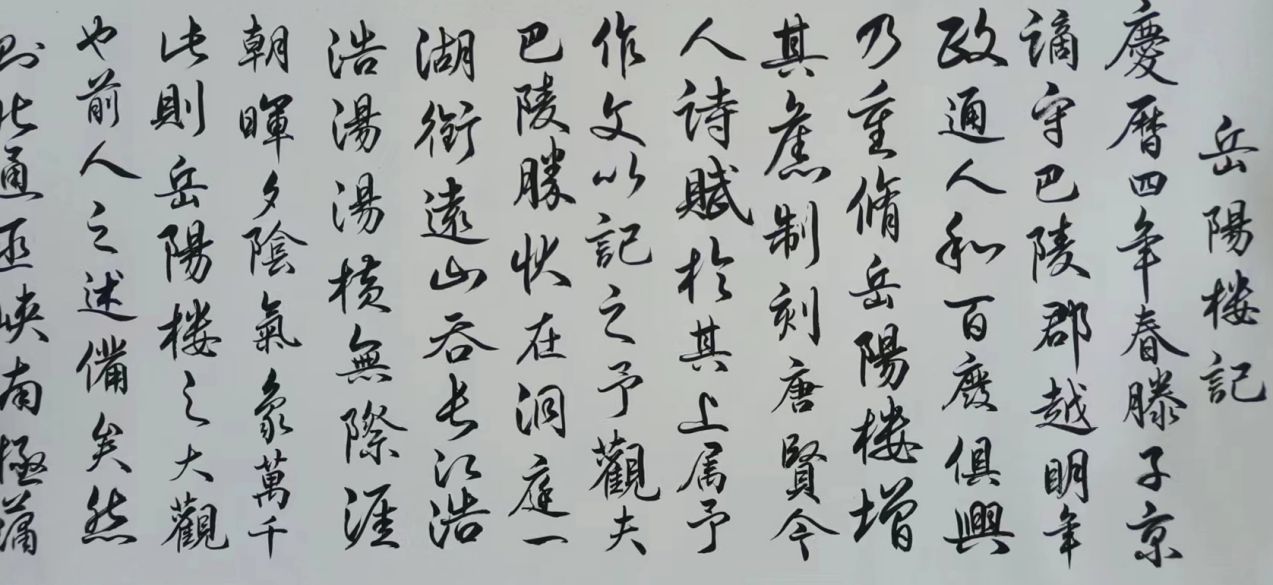 岳陽楼記
慶曆四年春滕子京
謫守巴陵郡越明年
政通人和百廢俱興
乃重脩岳陽楼增
其舊制刻唐賢今
人詩賦於其上属予
作文以記之予觀夫
巴陵勝状在洞庭一
湖銜遠山吞長江浩
浩湯湯横無際涯
朝暉夕陰氣象萬千
此則岳陽樓之大觀
也前人之述備矣然
則北通巫峡南極瀟